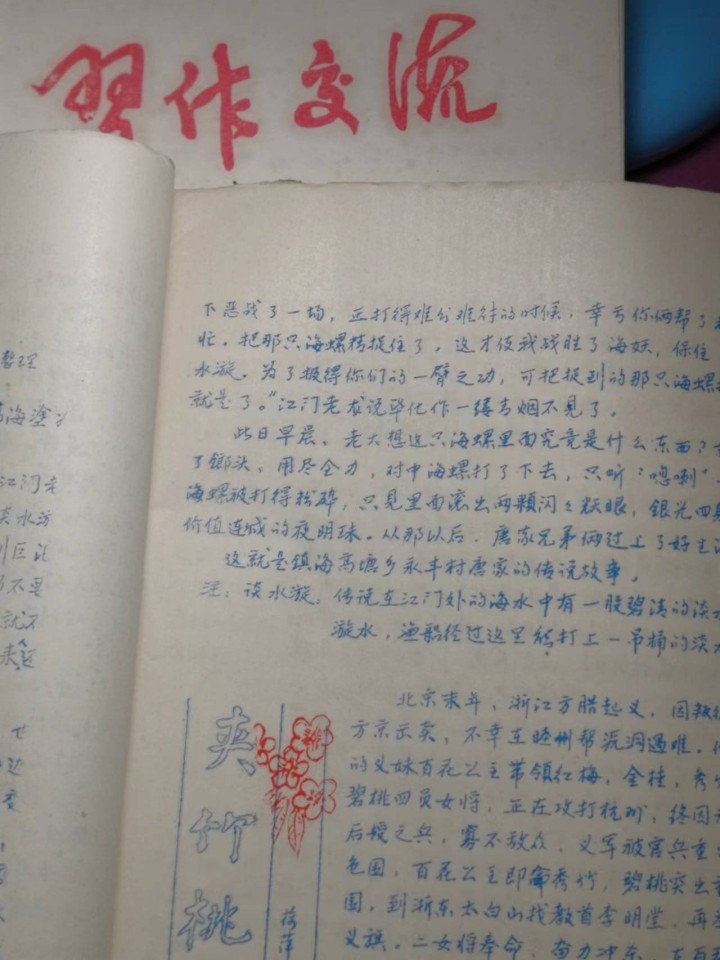 习作交流
整理
高海塗》
江河老
淡水汸
川巨
不要
就不
来边
下恶战了一场，正打得难分难解的时候，幸亏你俩帮了
忙，把那只海螺精捉住了，这才使我战胜了海妖，保住
水漩。为了报得你们的一臂之功，可把捉到的那只海螺
就是了。"江河老龙说毕化作一缕青烟不见了。
此日早晨，老大想这只海螺里面究竟是什么东西？
了鎯头，用尽全力，对中海螺打了下去，只听"嘭唎"
海螺被打得粉碎，只见里面滚出两颗闪々耀眼，银光四
价值连城的夜明珠。从那以后，唐家兄弟俩过上了好生
这就是镇海高塘乡永丰村唐家的传说故事。
注：谈水漩，传说在江门外的海水中有一股碧清的淡
漩水，渔船经过这里能打上一吊桶的淡
夹竹桃
北京末年，浙江方腊起义，因叛
方京出卖，不幸在睦州帮洸洞遇难。
的义妹百花公主带领红梅，金桂，秀
碧桃四员女将，正在攻打杭州，终因
后援之兵，寡不敌众，义军被官兵重
包围，百花公主即命秀竹，碧桃突出
围，到浙东太白山找教首李明堂，再
义旗。二女将奉命，奋力冲杀，在百